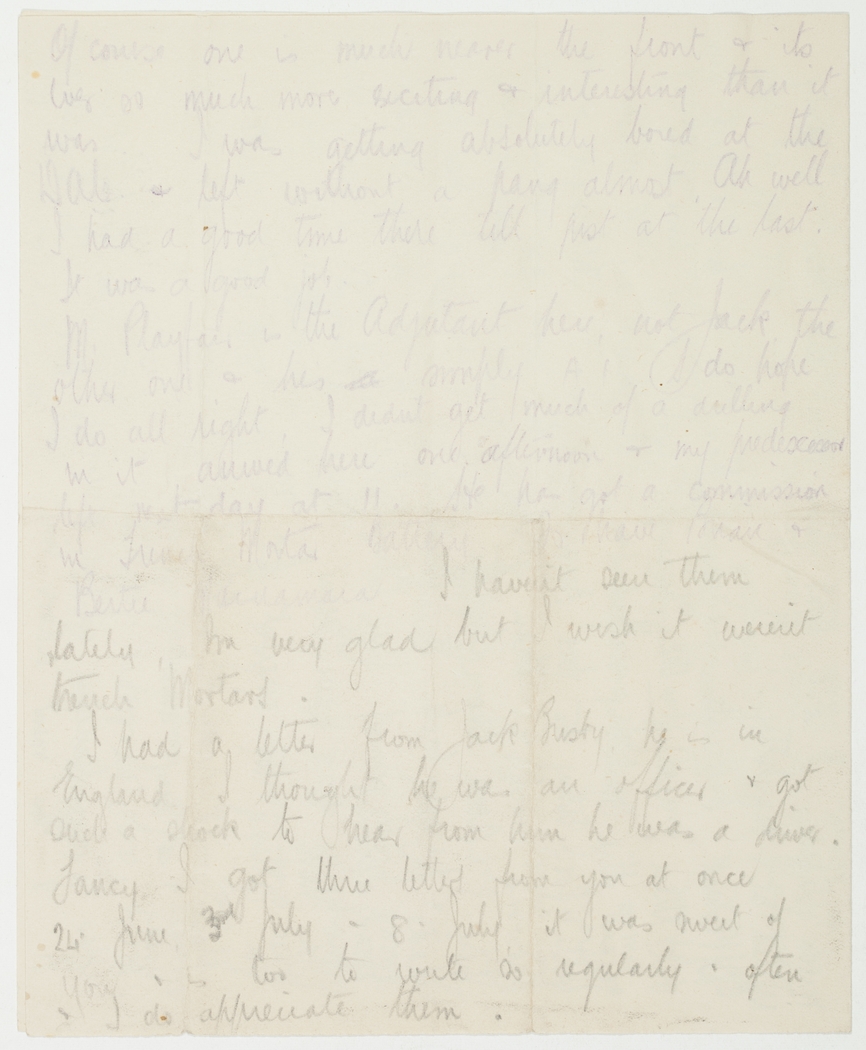 Of course one is much nearer the front & its
ever so much more exciting & interesting than it
was. I was getting absolutely bored at the
DAC & left without a pang almost. Ah well
I had a good time there till just at the last.
It was a good job.
M. Playfair is the Adjutant here, not Jack the
other one & hes simply A1. I do hope
I do all right, I didnt get much of a drilling
in it arrived here one afternoon & my predecessor
left next day at 11. He has got a commission
in Trench Mortar Battery &
Bertie I havent seen them
lately, Im very glad but I wish it werent
trench Mortars.
I had a letter from Jack Busby he is in
England I thought he was an officer & got
such a shock to hear from him he was a driver.
Fancy I got three letters from you at once
24 June 3rd July - 8 July it was sweet of
you & is too to write so regularly & often
& I do appreciate them.